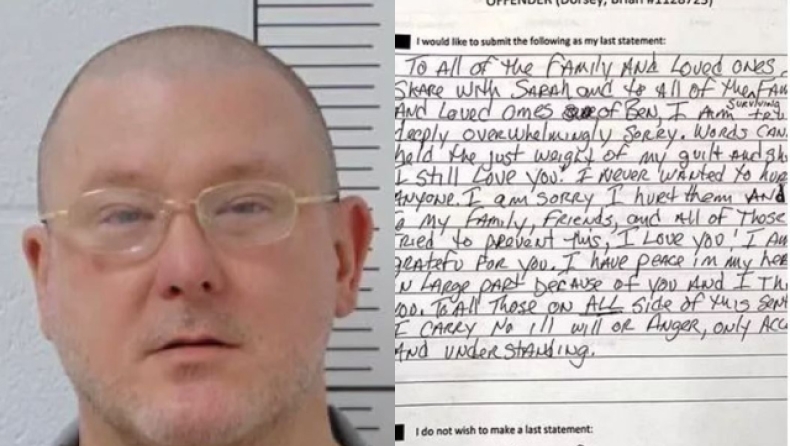 OFFENDER (Dorsey, Brian #1128725)
I would like to submit the following as my last statement:
TO All OF the FAMILY AND LOVED ONES
SHARE WITH SARAH and to All of the
AND LOVED ONES of BEN, I Am SURVIVING
deeply overwhelmingly SORRY. WORDS CAN
held the just weight of my guilt and
I still Love you! I NEVER WANTED to
ANYONE. I am SORRY I hurt them AND
my FAMILY, FRIENDS, and All of Those
TRIED to PREVENT this, I LOVE you! I
GRATEFU FOR YOU. I HAVE PEACE in my
LARGE PART BECAUSE of you AND I
To All Those on ALL Side of this
I CARRY No ill will OR ANGER, only
AND UNDERSTANDING.
I do not wish to make a last statement: